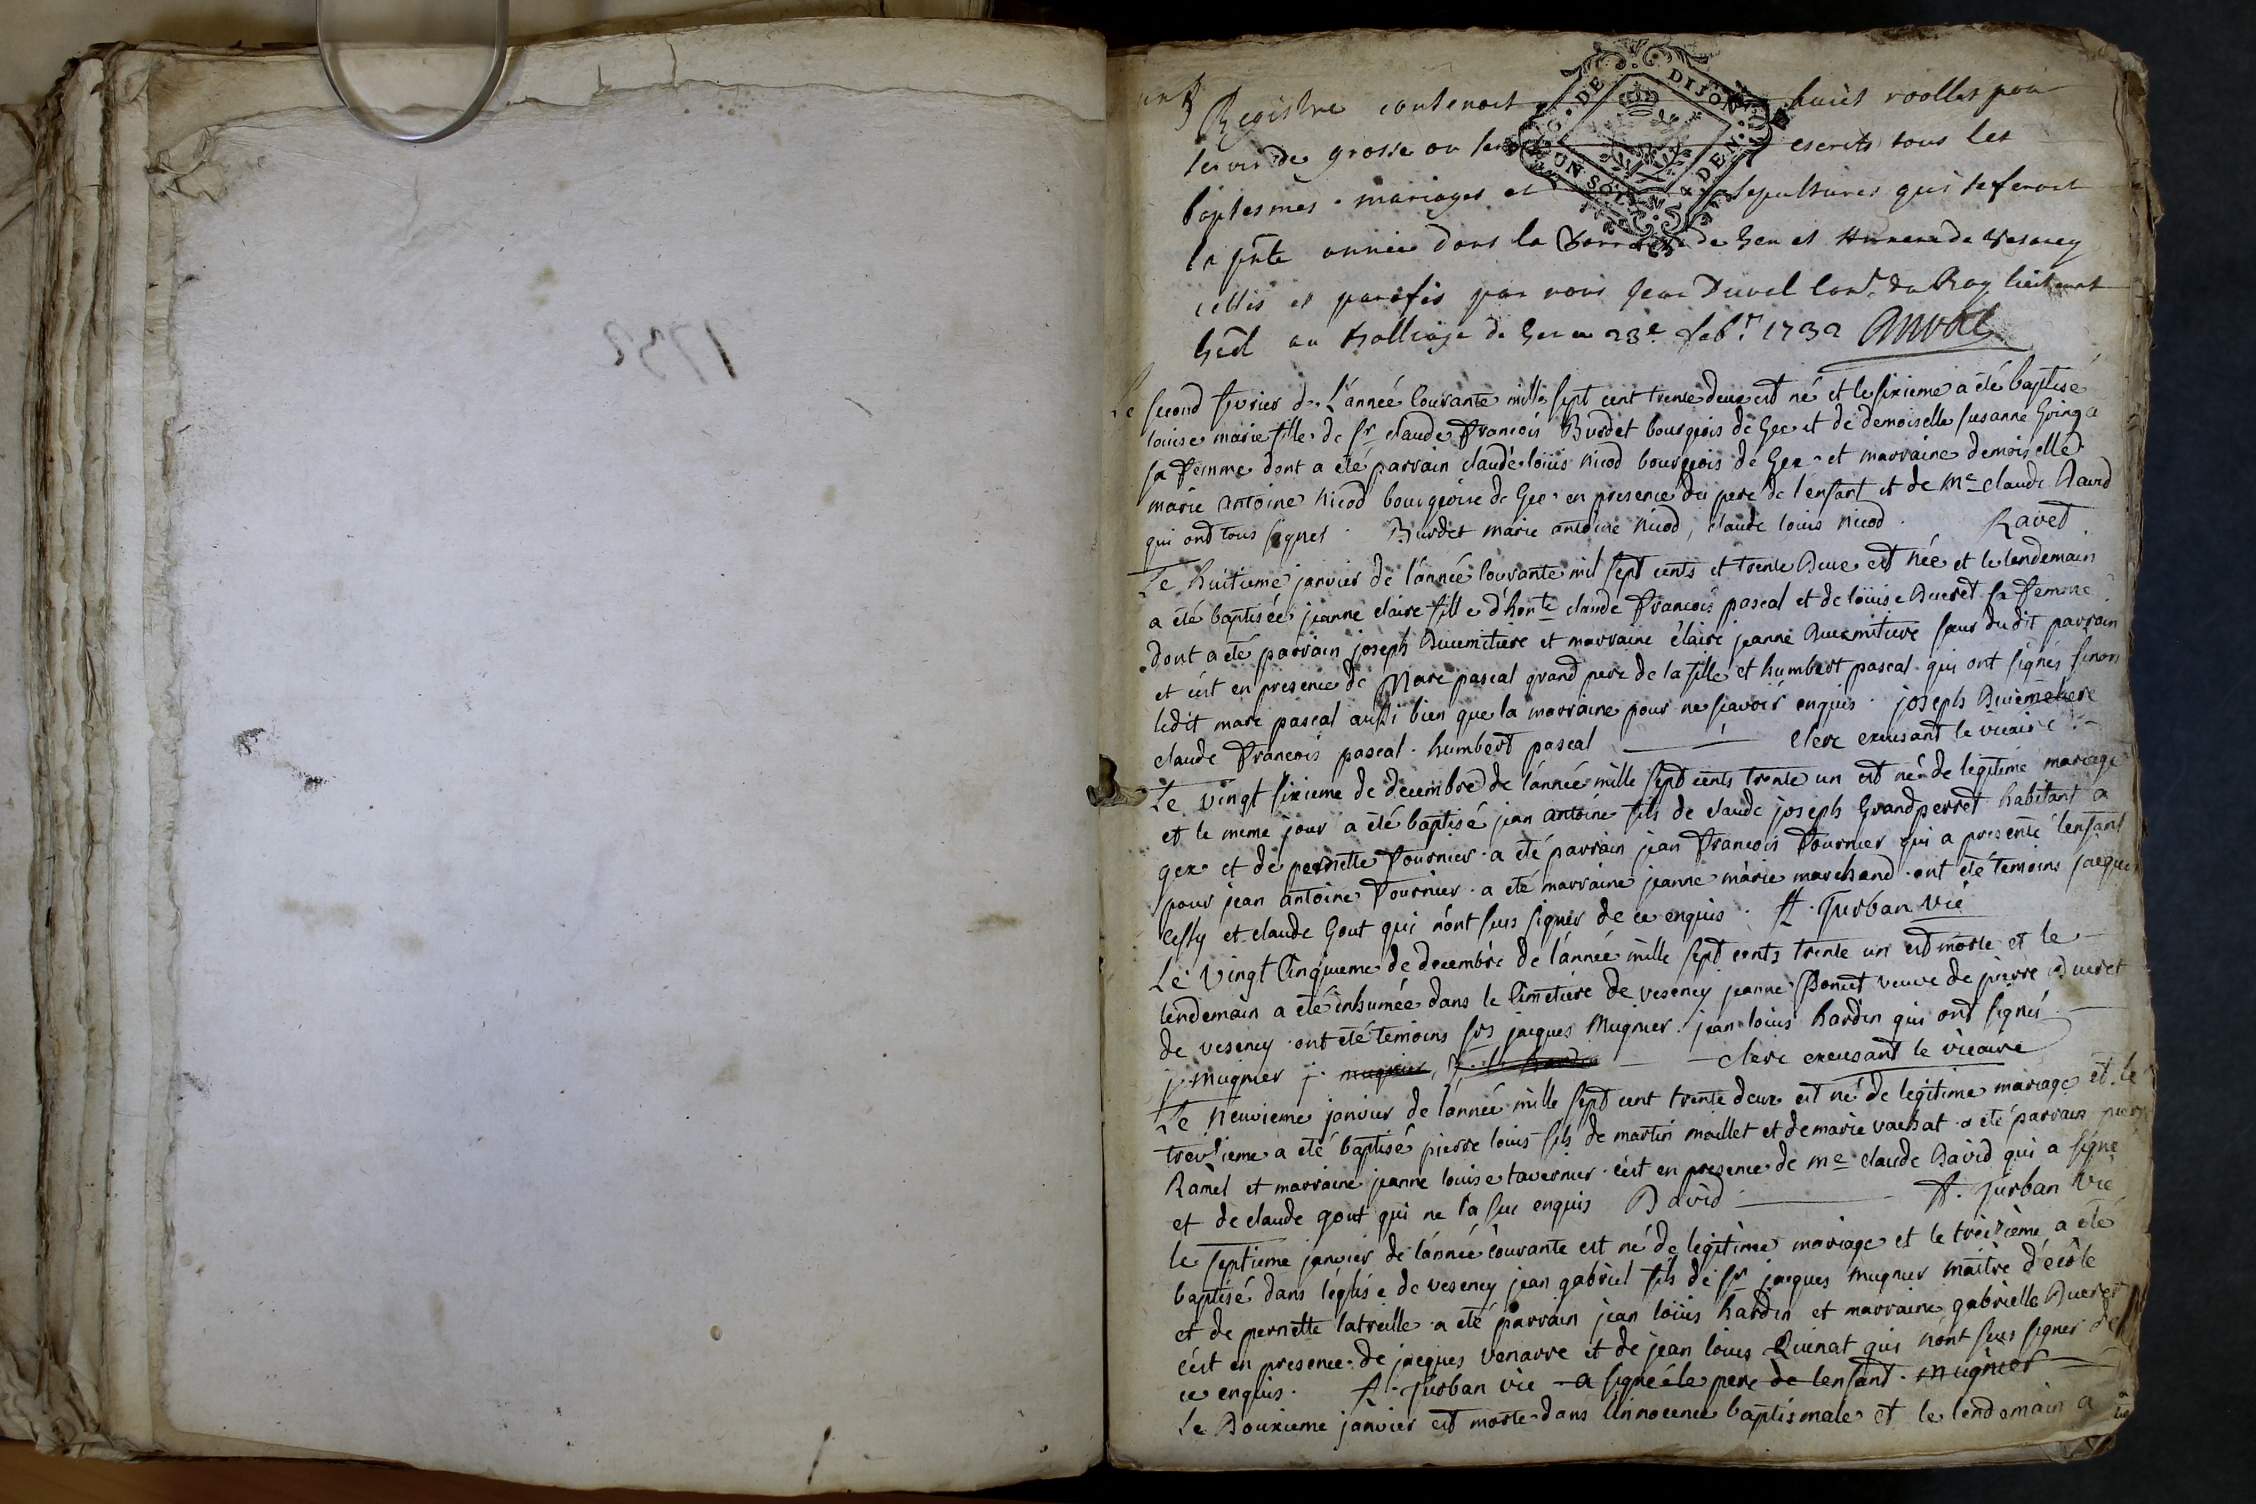 1732
Registre contenant huit roolles pour
servir de grosse ou seront escrits tous les
baptesmes . mariages et sepultures qui se feront
la pnte année dans la parroisse de Gex et Annexe de Vesancy
cottés et parafés par nous Jean Duval Conr. du Roy lieutenant
Gnal au Balliage de Gex ce 23e febr. 1732 Duval
Le second fevrier de l'année Courante mille sept cent trente deux est né et le sixieme a été baptisé
louise marie fille de Sr claude francois Burdet bourgeois de Gex et de demoiselle susanne
sa femme dont a été parrain claude loüis nicod bourgeois de Gex et marraine demoiselle
marie antoine nicod bourgeoise de Gex . en presence du pere de l'enfant et de Me claude David
qui ont tous signes . Burdet marie antoine nicod , claude louis nicod . Ravet
Le huitieme janvier de l'année Courante mil sept cents et trente deux est née et le lendemain
a été baptisée jeanne claire fille d'honte claude francois pascal et de loüise Dueret sa femme
dont a été parrain joseph Duicmetiere et marraine claire jeanne Duicmetiere sœur du dit parrain
et c'est en presence de Marc pascal grand pere de la fille et humbert pascal . qui ont signés sinon
ledit marc pascal aussi bien que la marraine pour ne sçavoir enquis . joseph Duicmetiere
claude francois pascal . humbert pascal clerc excusant le vicaire
Le vingt sixieme de decembre de l'année mille sept cents trente un est né de legitime mariage
et le meme jour a été baptisé jean antoine fils de claude joseph Grandperret habitant a
gex et de pernette fournier . a été parrain jean francois fournier qui a presenté l'enfant
pour jean antoine fournier . a été marraine jeanne marie marchand . ont été temoins jacques
Cessy et claude Gout qui n'ont sceus signer de ce enquis . A . Jurban Vic
Le Vingt Cinquieme de decembre de l'année mille sept cents trente un est morte et le
lendemain a été inhumée dans le Cimetiere de vesency jeanne Ponset veuve de pierre Dueret
de vesency . ont été temoins Srs jacques Mugnier . jean loüis hardin qui ont signés
j. mugnier j. mugnier, clerc excusant le vicaire
Le Neuvieme janvier de l'année mille sept cent trente deux est né de legitime mariage et le
treizieme a été baptisé pierre louis fils de martin maillet et de marie vachat . a été parrain pierre
Ramel et marraine jeanne louise tavernier . c'est en presence de Me claude David qui a signé
et de claude gout qui ne l'a sçu enquis David A . Jurban Vic
le septieme janvier de l'année courante est né de legitime mariage et le treizième a été
baptisé dans l'église de vesency jean gabriel fils de Sr jacques mugnier maître d'école
et de pernette latreille . a été parrain jean loüis hardin et marraine gabrielle Dueret
c'est en presence . de jacques venarre et de jean louis Quinat qui n'ont sceus signer de
ce enquis . A . Jurban vic a signé le pere de l'enfant . mugnier
Le Douzieme janvier est morte dans l'innocence baptismale et le lendemain a